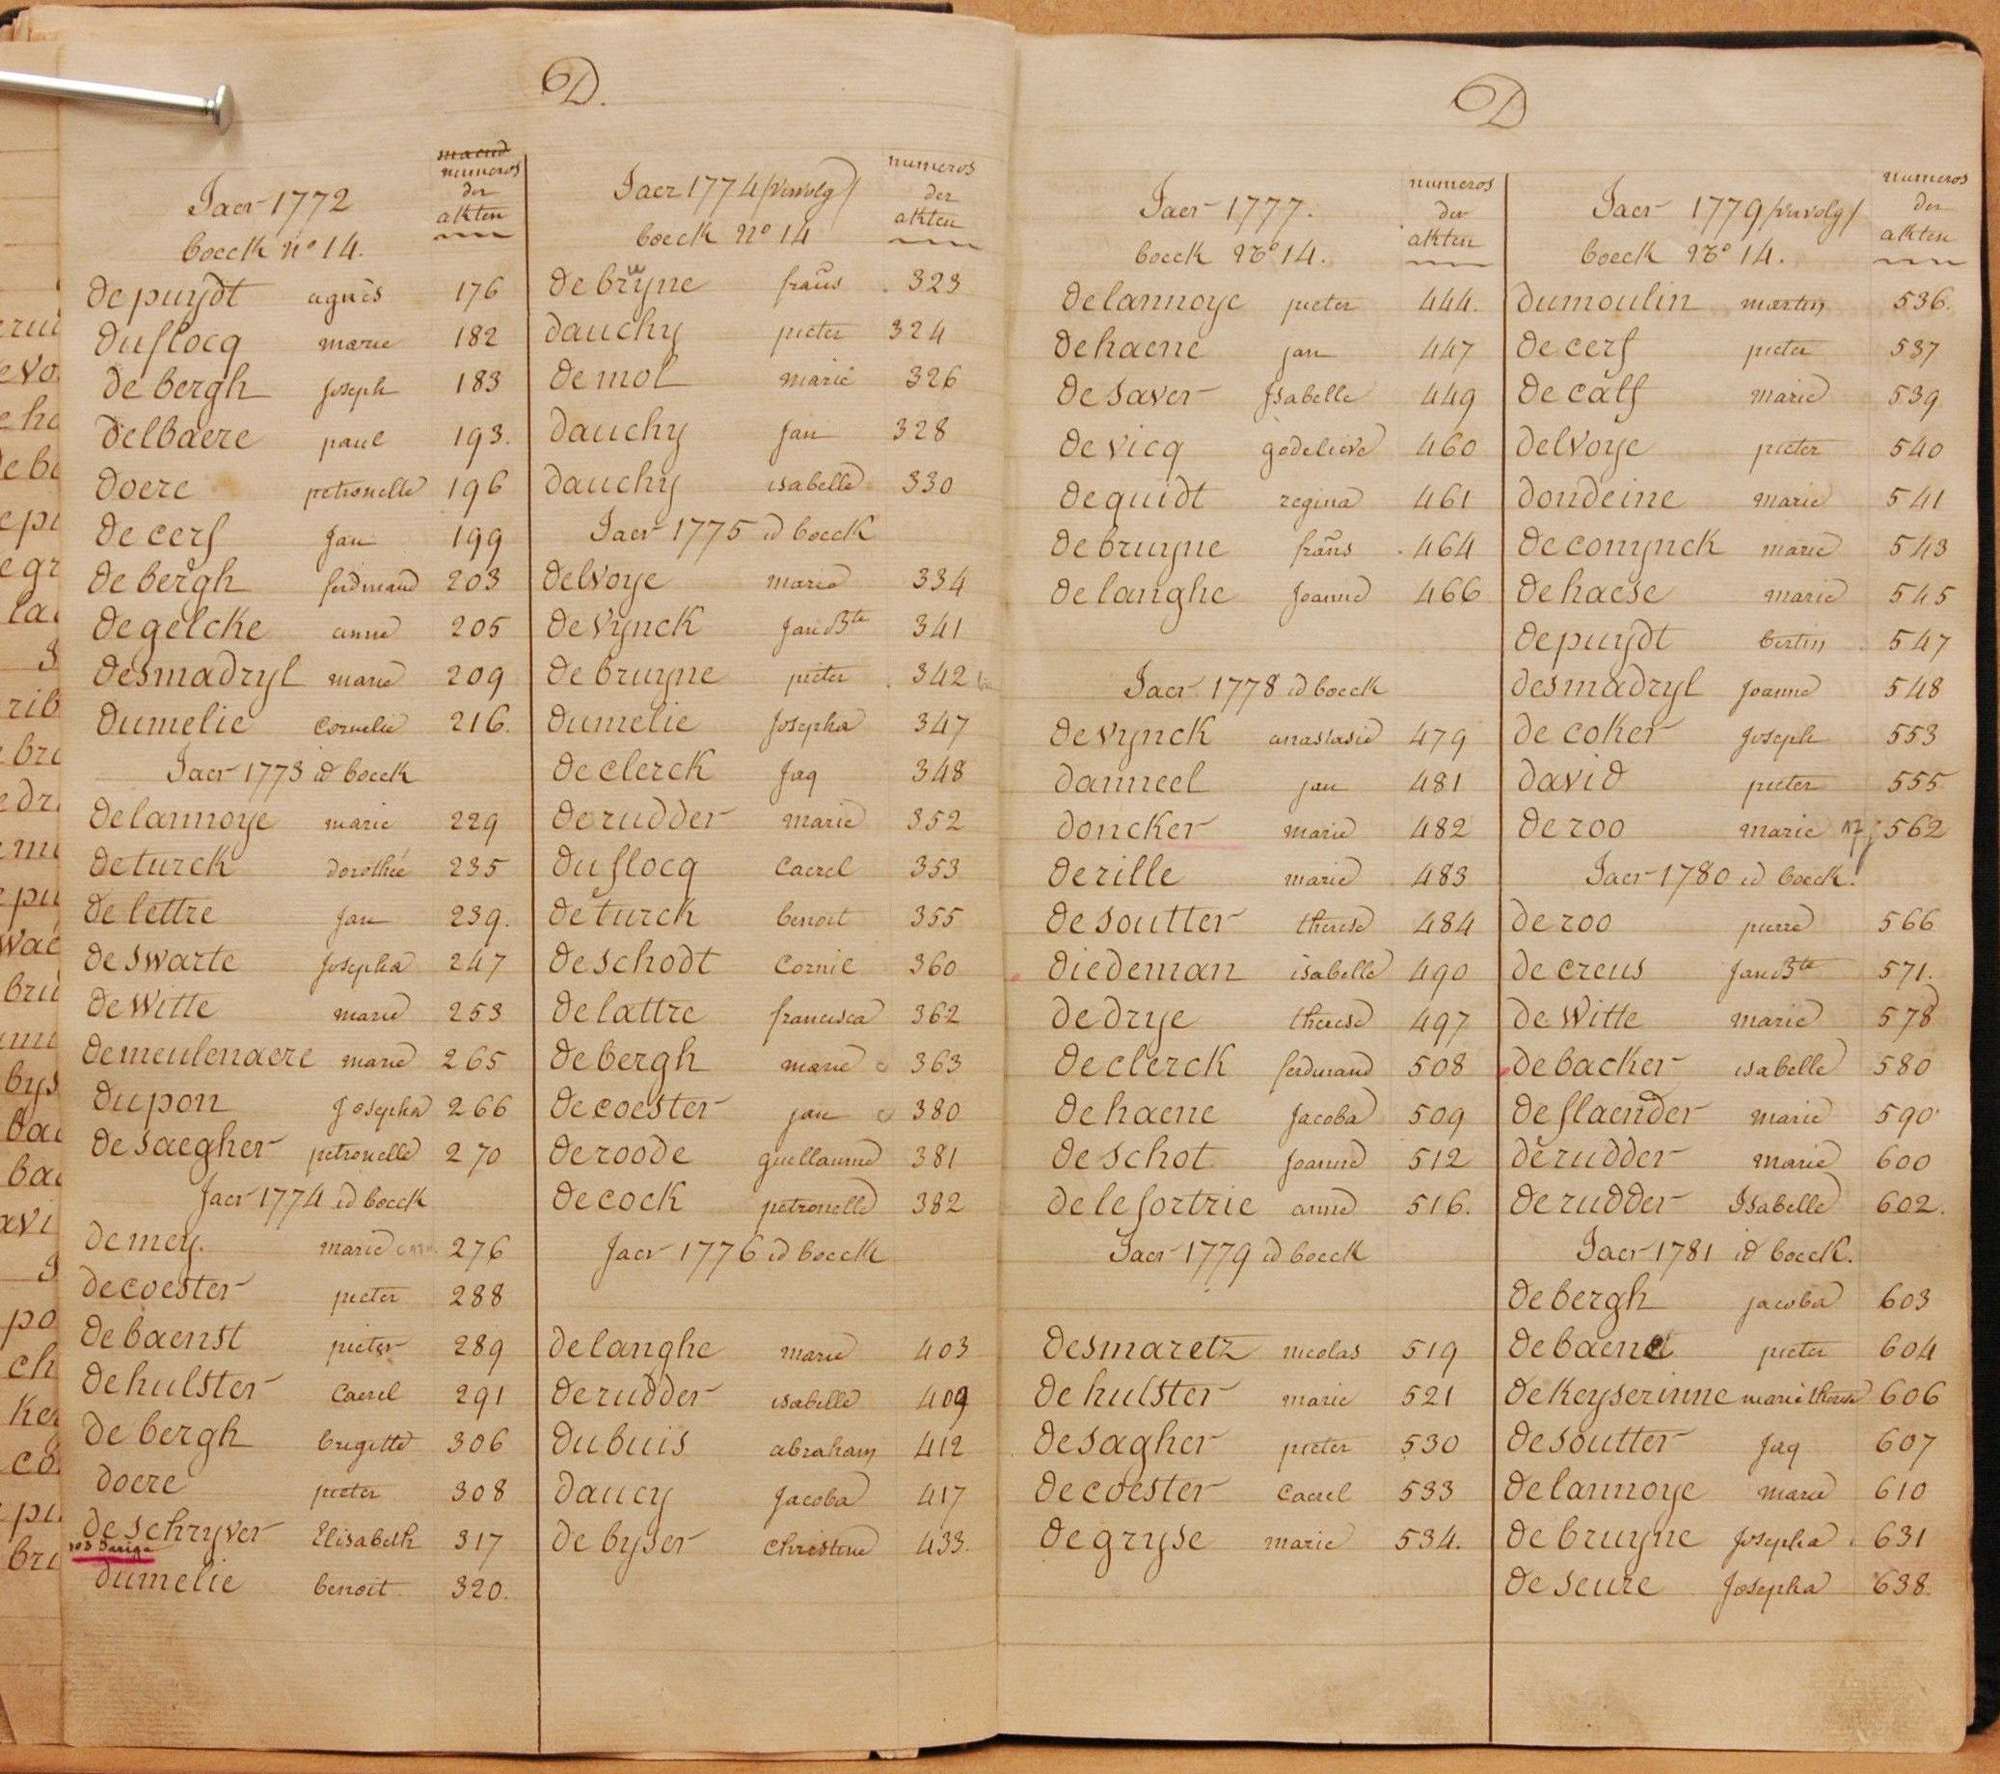 D.
Jaer 1772
boeck nº 14.
numeros
der
akten
depuydt agnès 176
duflocq marie 182
de bergh joseph 183
delbaere paul 193.
doere petronelle 196
de cerf jan 199
de bergh ferdinand 203
de gelcke anne 205
desmadryl marie 209
dumelie cornelie 216.
Jaer 1773 id boeck
delannoye marie 229
deturck dorothée 235
de lettre jan 239.
de swarte josepha 247
de witte marie 253
demeulenaere marie 265
dupon josepha 266
desaegher petronelle 270
Jaer 1774 id boeck
demey. marie 276
decoester pieter 288
debaenst pieter 289
dehulster Caerel 291
de bergh brigitte 306
doere pieter 308
deschryver Elisabeth 317
dumelie benoit 320.
Jaer 1774 /vervolg/
boeck nº 14
numeros
der
akten
debruyne frans 323
dauchy pieter 324
demol marie 326
dauchy jan 328
dauchy isabelle 330
Jaer 1775 id boeck
delvoye marie 334
devynck jan Bte 341
debruyne pieter 342
dumelie josepha 347
declerck jaq 348
derudder marie 352
duflocq Caerel 353
deturck benoit 355
deschodt Cornil 360
delattre francisca 362
debergh marie 363
decoester jan 380
deroode guillaume 381
decock petronelle 382
Jaer 1776 id boeck
delanghe marie 403
derudder isabelle 409
dubuis abraham 412
daucy jacoba 417
de byser christine 433.
D
Jaer 1777.
boeck nº 14.
numeros
der
akten
delannoye pieter 444.
dehaene jan 447
desaver isabelle 449
devicq godelieve 460
dequidt regina 461
debruyne frans 464
delanghe joanne 466
Jaer 1778 id boeck
devynck anastasie 479
danneel jan 481
doncker marie 482
derille marie 483
desoutter therese 484
diedeman isabelle 490
dedrye therese 497
declerck ferdinand 508
dehaene jacoba 509
deschot joanne 512
delefortrie anne 516.
Jaer 1779 id boeck
desmaretz nicolas 519
dehulster marie 521
desagher pieter 530
decoester Caerel 533
degryse marie 534.
Jaer 1779 /vervolg/
boeck nº 14.
numeros
der
akten
dumoulin martin 536.
decerf pieter 537
decalf marie 539
delvoye pieter 540
dondeine marie 541
deconynck marie 543
dehaese marie 545
depuydt bertin 547
desmadryl joanne 548
de coker joseph 553
david pieter 555
deroo marie 562
Jaer 1780 id boeck.
deroo pierre 566
decreus jan Bte 571.
dewitte marie 578
debacker isabelle 580
deflaender marie 590
derudder marie 600
derudder Isabelle 602.
Jaer 1781 id boeck.
debergh jacoba 603
debaene pieter 604
dekeyserinne marie therese 606
desoutter jaq 607
delannoye marie 610
debruyne josepha 631
deseure josepha 638.